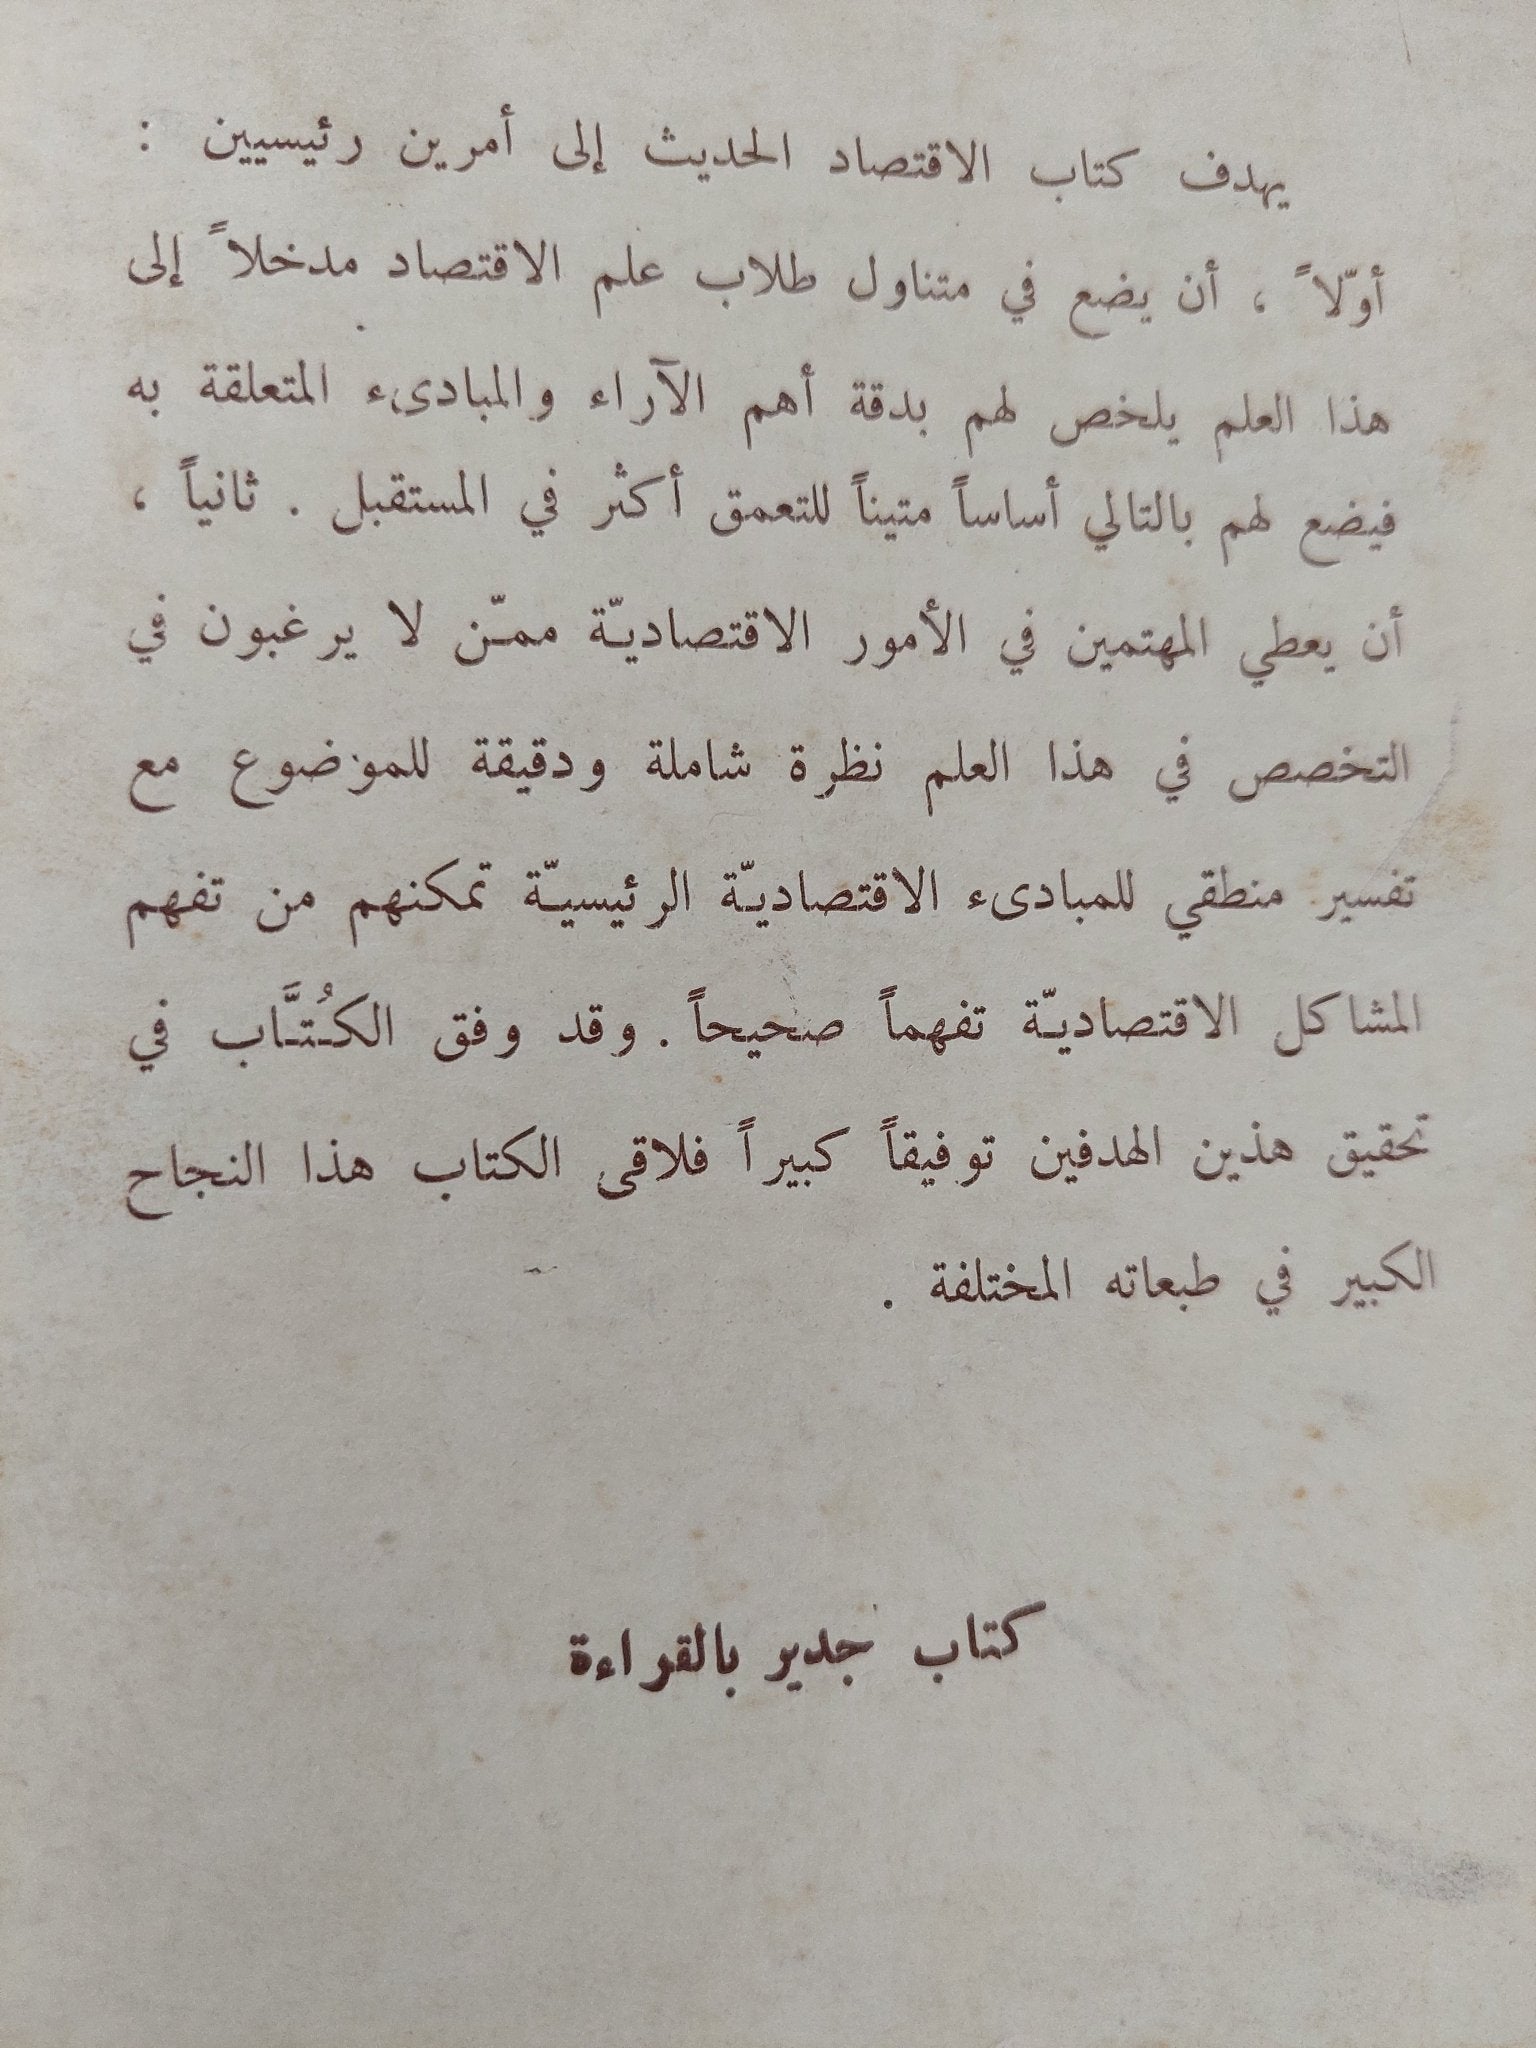 يهدف كتاب الاقتصاد الحديث إلى أمرين رئيسيين :
أوّلاً ، أن يضع في متناول طلاب علم الاقتصاد مدخلاً إلى
هذا العلم يلخص لهم بدقة أهم الآراء والمبادىء المتعلقة به
فيضع لهم بالتالي أساساً متيناً للتعمق أكثر في المستقبل . ثانياً ،
أن يعطي المهتمين في الأمور الاقتصاديّة ممّن لا يرغبون في
التخصص في هذا العلم نظرة شاملة ودقيقة للموضوع مع
تفسير منطقي للمبادىء الاقتصاديّة الرئيسيّة تمكنهم من تفهم
المشاكل الاقتصاديّة تفهماً صحيحاً . وقد وفق الكُتَّاب في
تحقيق هذين الهدفين توفيقاً كبيراً فلاقى الكتاب هذا النجاح
الكبير في طبعاته المختلفة .
كتاب جدير بالقراءة